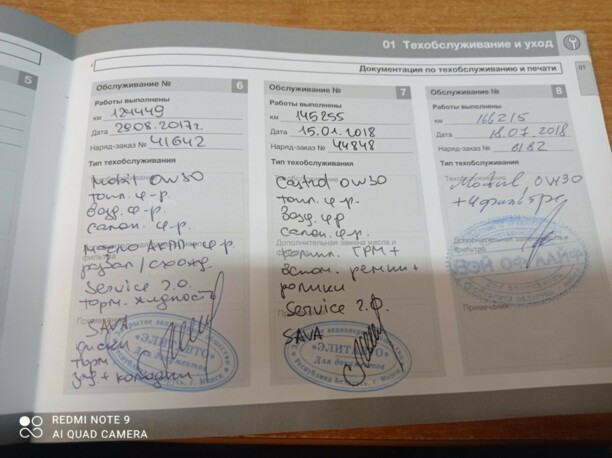 5
01 Техобслуживание и уход
Документация по техобслуживанию и печати
01
Обслуживание № 6
Работы выполнены
км 124449
Дата 29.08.2017г.
Наряд-заказ № 41642
Тип техобслуживания
Mobil 0W30
топл. ф-р.
возд. ф-р.
салон. ф-р.
масло АКПП + ф-р.
развал / схожд.
Service 2.0.
торм. жидкость
SAVA
диски
торм
колодки
«ЭЛИТАВТО»
Для документов
Республика Беларусь, г. Минск
Обслуживание № 7
Работы выполнены
км 145255
Дата 15.01.2018
Наряд-заказ № 44848
Тип техобслуживания
Castrol 0W30
топл. ф-р.
возд. ф-р
салон. ф-р.
Дополнительная замена масла и
ГРМ +
ремни +
ролики
Service 2.0.
SAVA
«ЭЛИТАВТО»
Для документов
Республика Беларусь, г. Минск
Обслуживание № 8
Работы выполнены
км 166215
Дата 18.07.2018
Наряд-заказ №
Тип техобслуживания
0W30
REDMI NOTE 9
AI QUAD CAMERA